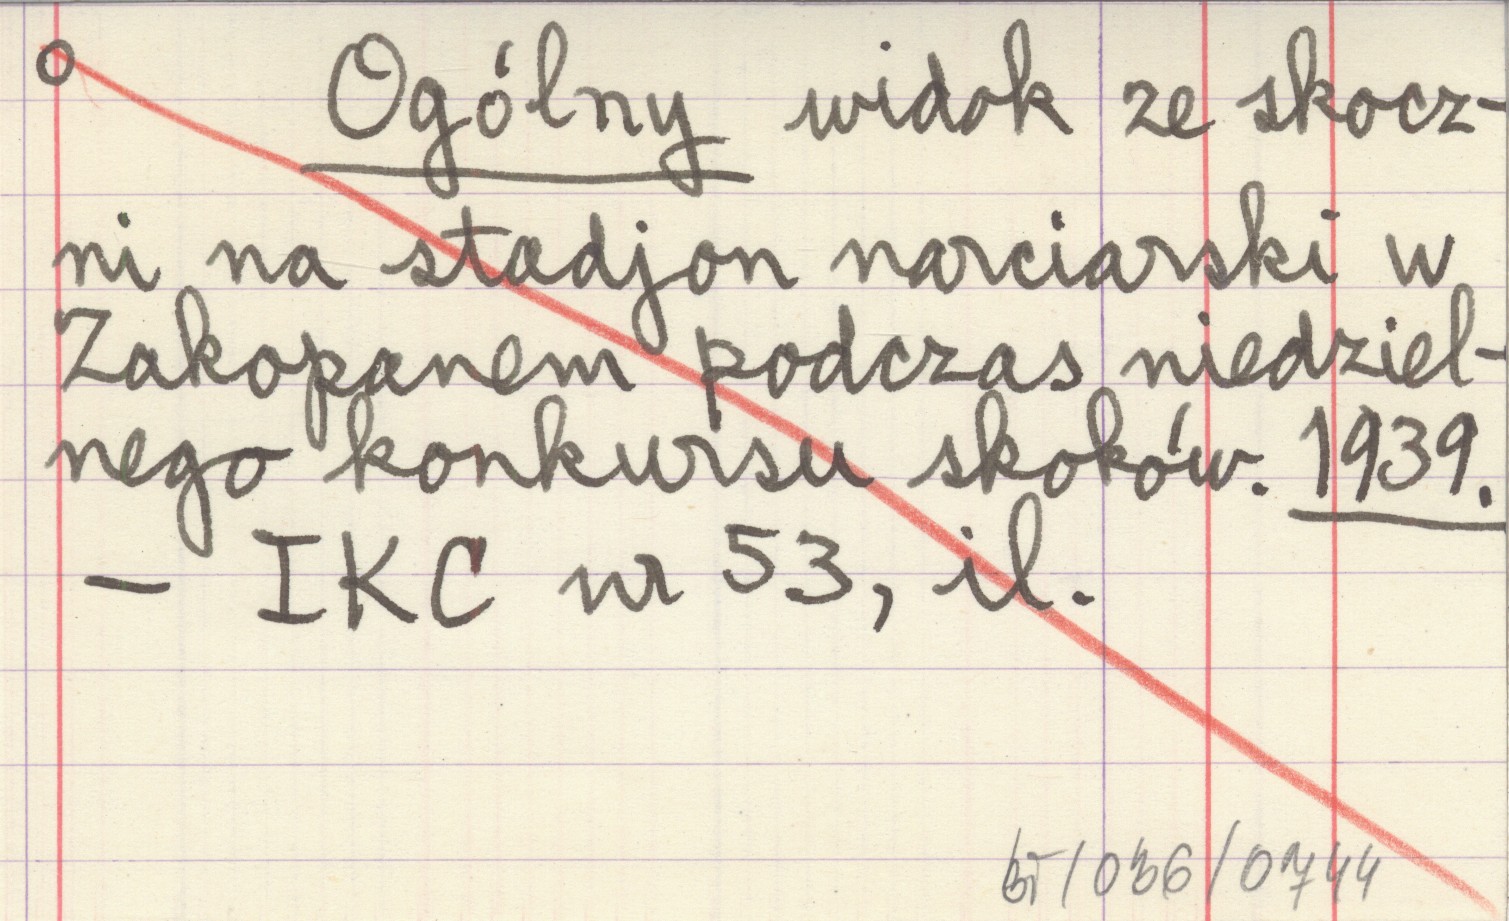 o Ogólny widok ze skocz-
ni na stadjon narciarski w
Zakopanem podczas niedziel-
nego konkursu skoków. 1939.
— IKC nr 53, il.
/036/0744